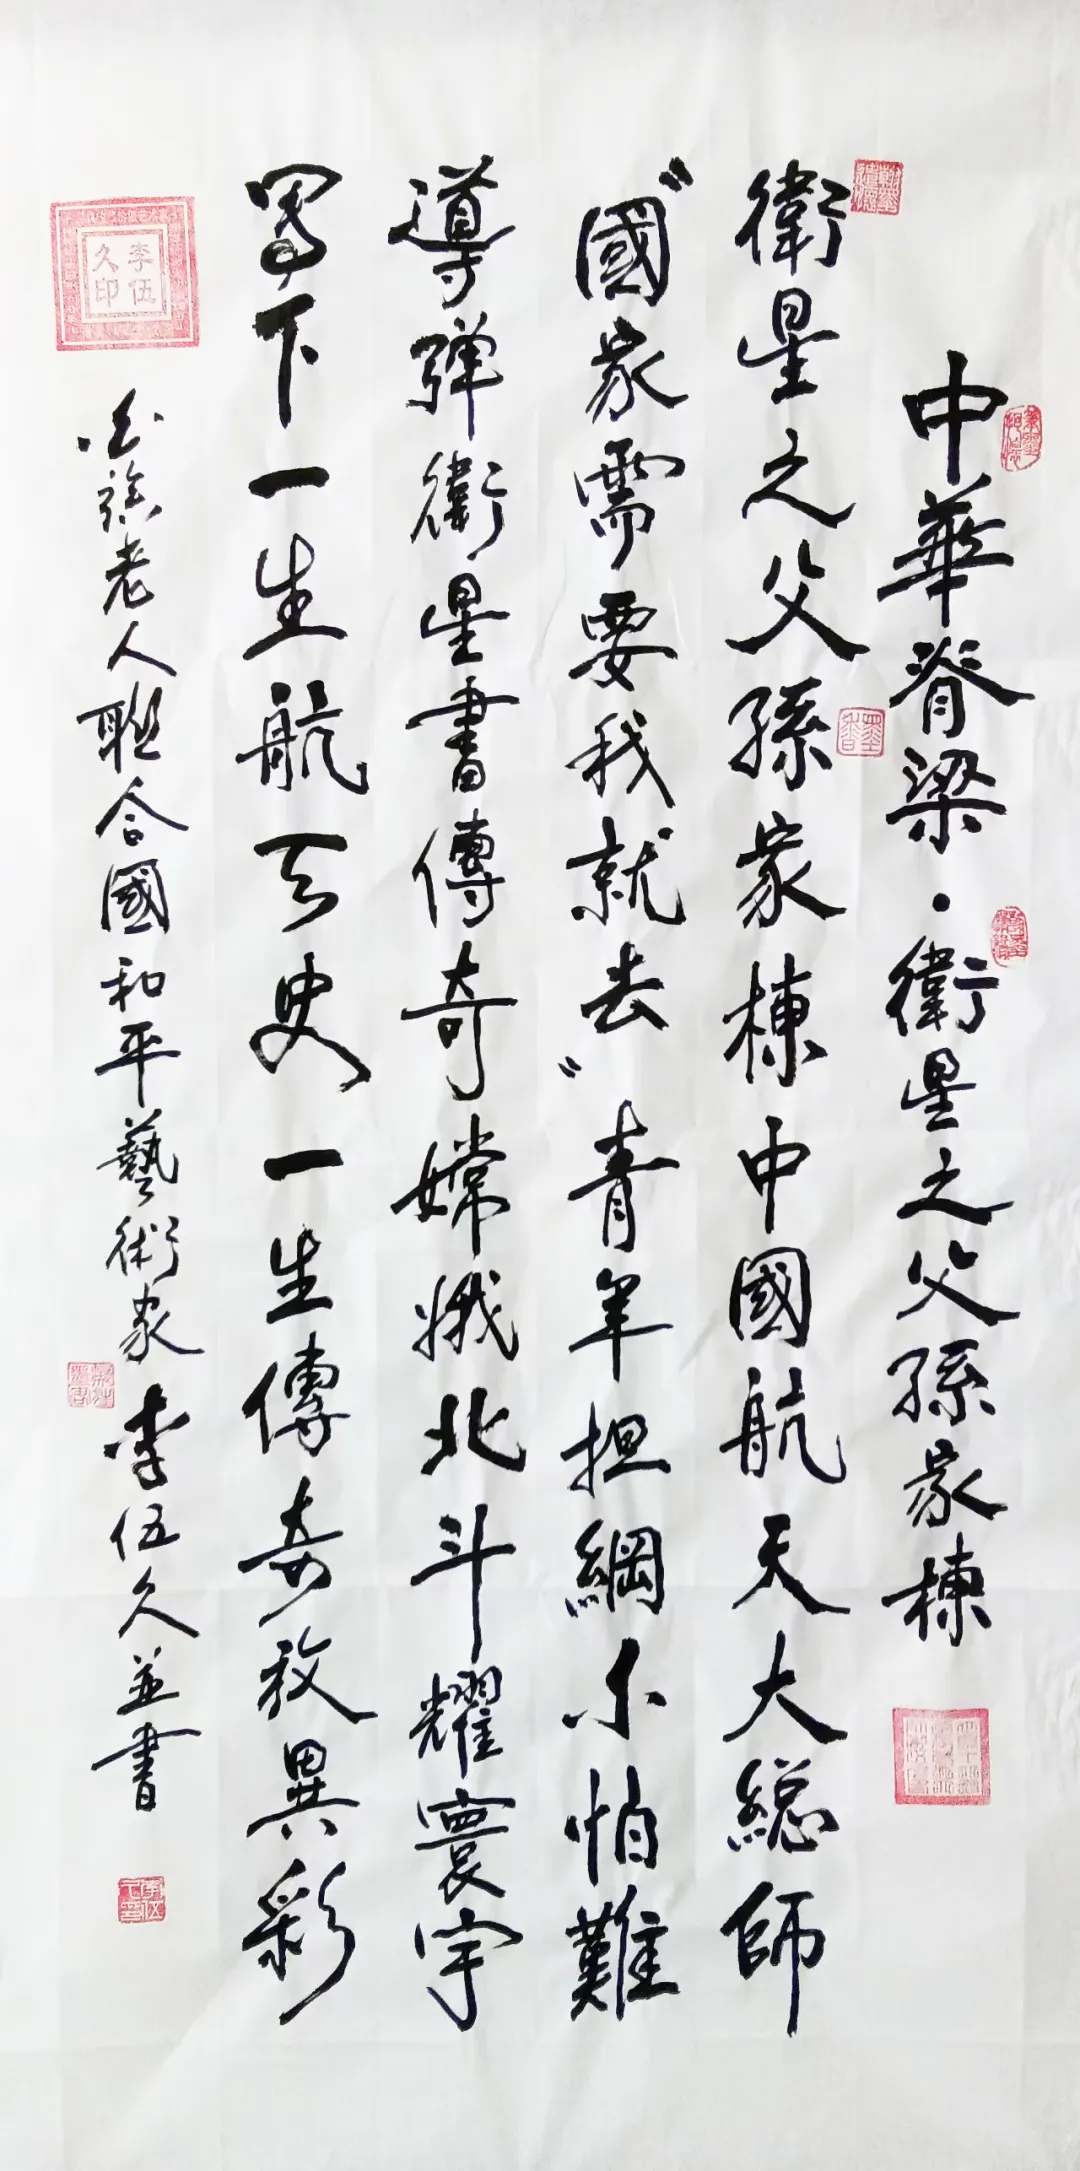 中華脊梁·衛星之父孫家棟
衛星之父孫家棟中國航天大総師
"國家需要我就去"青年担綱不怕難
導弹衛星書傳奇嫦娥北斗耀寰宇
寫下一生航天史一生傳奇放異彩
老人聯合國和平藝術家李伍久並書
李伍久印